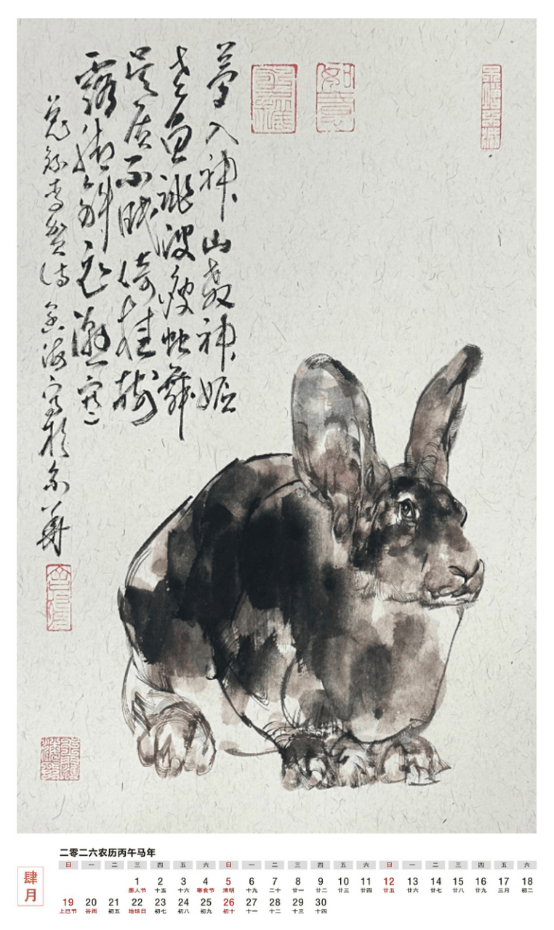 夢入神山教神嫗
老魚跳波瘦蛟舞
吴质不眠倚桂樹
露脚斜飛濕寒
兔
海写於京華
如意
二零二六农历丙午马年
肆月
日 一 二 三 四 五 六 日 一 二 三 四 五 六 日 一 二 三 四 五 六
1 2 3 4 5 6 7 8 9 10 11 12 13 14 15 16 17 18
愚人节 十五 十六 寒食节 清明 十九 二十 廿一 廿二 廿三 廿四 廿五 廿六 廿七 廿八 廿九 三月 初二
19 20 21 22 23 24 25 26 27 28 29 30
上巳节 谷雨 初五 地球日 初七 初八 初九 初十 十一 十二 十三 十四